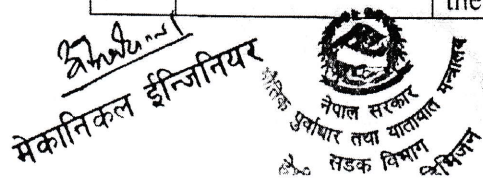 the
मेकानिकल ईन्जिनियर
नेपाल सरकार
भौतिक पुर्वाधार तथा यातायात मन्त्रालय
सडक विभाग
डिभिजन